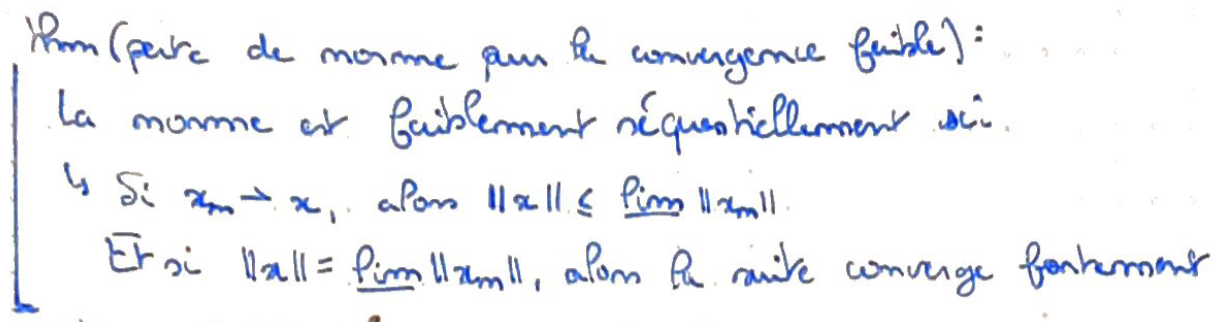 Thm (perte de norme par la convergence faible) :
La norme est faiblement séquentiellement sci.
↳ Si xₙ ⇀ x, alors ||x|| ≤ <u>lim</u> ||xₙ||
Et si ||x|| = <u>lim</u> ||xₙ||, alors la suite converge fortement